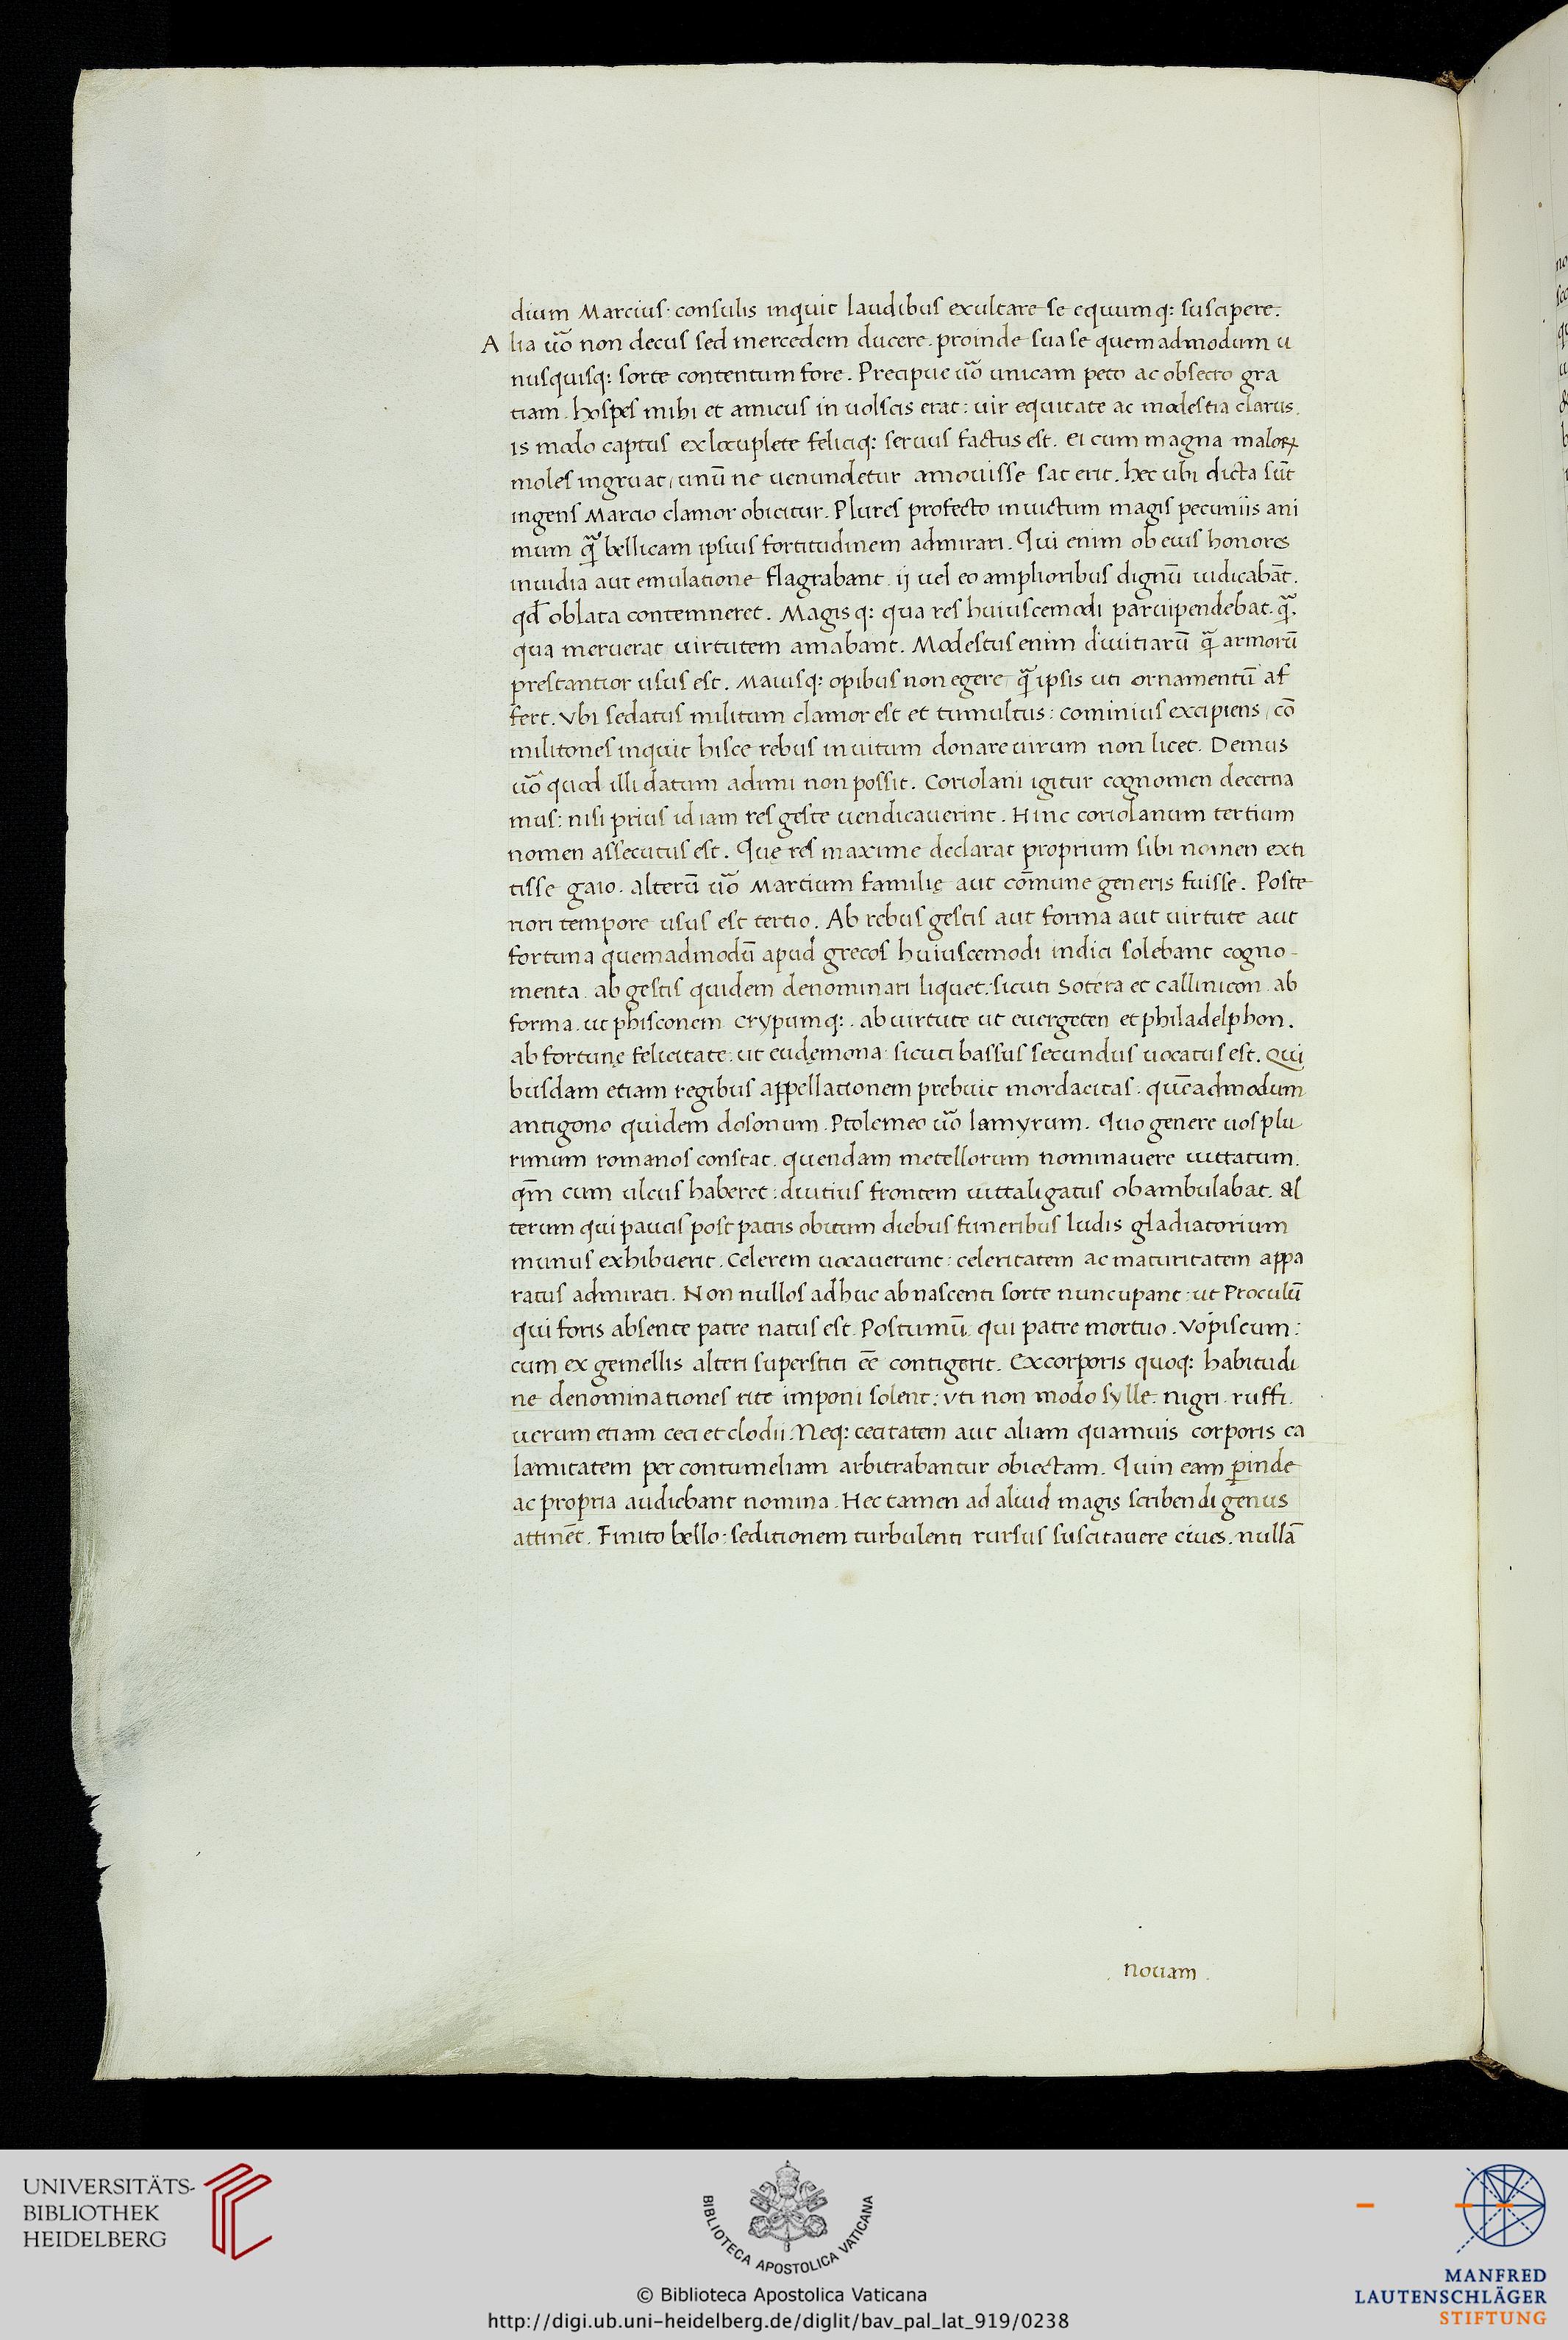 dium Marcius· consulis inquit laudibus exultare se equumq; suscipere.
Alia uо̄ non decus sed mercedem ducere. proinde sua se quemadmodum u
nusquisq; sorte contentum fore. Precipue uō unicam peto ac obsecro gra
tiam. hospes mihi et amicus in uolscis erat: uir equitate ac modestia clarus.
is modo captus ex locuplete feliciq; seruus factus est. ei cum magna maloꝝ
moles ingruat, unū ne uenundetur amouisse sat erit. hec ubi dicta sūt
ingens Marcio clamor obicitur. Plures profecto inuictum magis pecuniis ani
mum qᷓ bellicam ipsius fortitudinem admirari. Qui enim ob eius honores
inuidia aut emulatione flagrabant. ij uel eo amplioribus dignū iudicabāt.
qđ oblata contemneret. Magisq; qua res huiuscemodi paruipendebat. qᷓ.
qua meruerat uirtutem amabant. Modestus enim diuitiarū qᷓ armorū
prestantior usus est. Maiusq; opibus non egere qᷓ ipsis uti ornamentū af
fert. Vbi sedatus militum clamor est et tumultus: cominius excipiens, cō
militones inquit hisce rebus inuitum donare uirum non licet. Demus
uō quod illi datum adimi non possit. Coriolani igitur cognomen decerna
mus: nisi prius id iam res geste uendicauerint. Hinc coriolanum tertium
nomen assecutus est. Quę res maxime declarat proprium sibi nomen exti
tisse gaio. alterū uō Martium familię aut cōmune generis fuisse. Poste
riori tempore usus est tertio. Ab rebus gestis aut forma aut uirtute aut
fortuna quemadmodū apud grecos huiuscemodi indici solebant cogno-
menta. ab gestis quidem denominari liquet: sicuti Sotera et callinicon. ab
forma. ut phisconem crypumq;. ab uirtute ut euergeten et philadelphon.
ab fortunę felicitate. ut eudęmona: sicuti bassus secundus uocatus est. Qui
busdam etiam regibus appellationem prebuit mordacitas. quēadmodum
antigono quidem dosonum. Ptolemeo uō lamyrum. Quo genere uos plu
rimum romanos constat. quendam metellorum nominauere uittatum.
qm̄ cum ulcus haberet: diutius frontem uitta ligatus obambulabat. al
terum qui paucis post patris obitum diebus funeribus ludis gladiatorium
munus exhibuerit. Celerem uocauerunt: celeritatem ac maturitatem appa
ratus admirati. Non nullos adhuc ab nascenti sorte nuncupant: ut Proculū
qui foris absente patre natus est. Postumū. qui patre mortuo. Vopiscum:
cum ex gemellis alteri superstiti eē contigerit. Ex corporis quoq; habitudi
ne denominationes rite imponi solent: uti non modo sylle. nigri. ruffi.
uerum etiam ceci et clodii. Neq; cecitatem aut aliam quamuis corporis ca
lamitatem per contumeliam arbitrabantur obiectam. Quin eam ꝑinde
ac propria audiebant nomina. Hec tamen ad aliud magis scribendi genus
attinēt. Finito bello: seditionem turbulenti rursus suscitauere ciues. nullā
. nouam .
UNIVERSITÄTS-
BIBLIOTHEK
HEIDELBERG
BIBLIOTECA APOSTOLICA VATICANA
© Biblioteca Apostolica Vaticana
http://digi.ub.uni-heidelberg.de/diglit/bav_pal_lat_919/0238
MANFRED
LAUTENSCHLÄGER
STIFTUNG